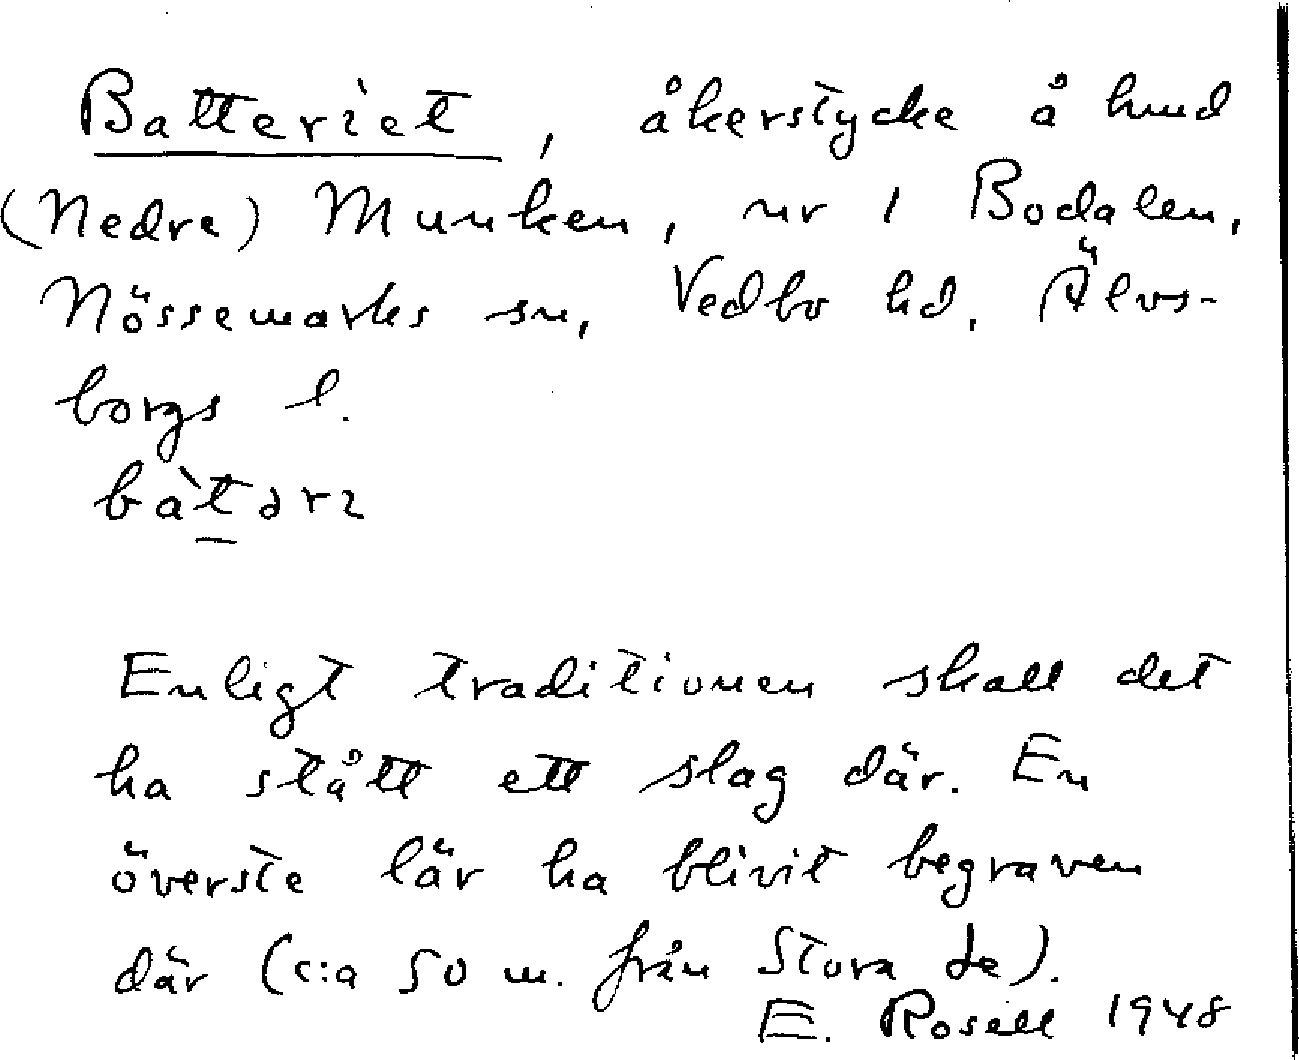 Batteriet, åkerstycke å hmd
(Nedre) Munken, nr 1 Bodalen,
Nössemarks sn, Vedbo hd, Älvs-
borgs l.
Enligt traditionen skall det
ha stått ett slag där. En
överste lär ha blivit begraven
där (c:a 50 m. från Stora
E. Rosell 1948